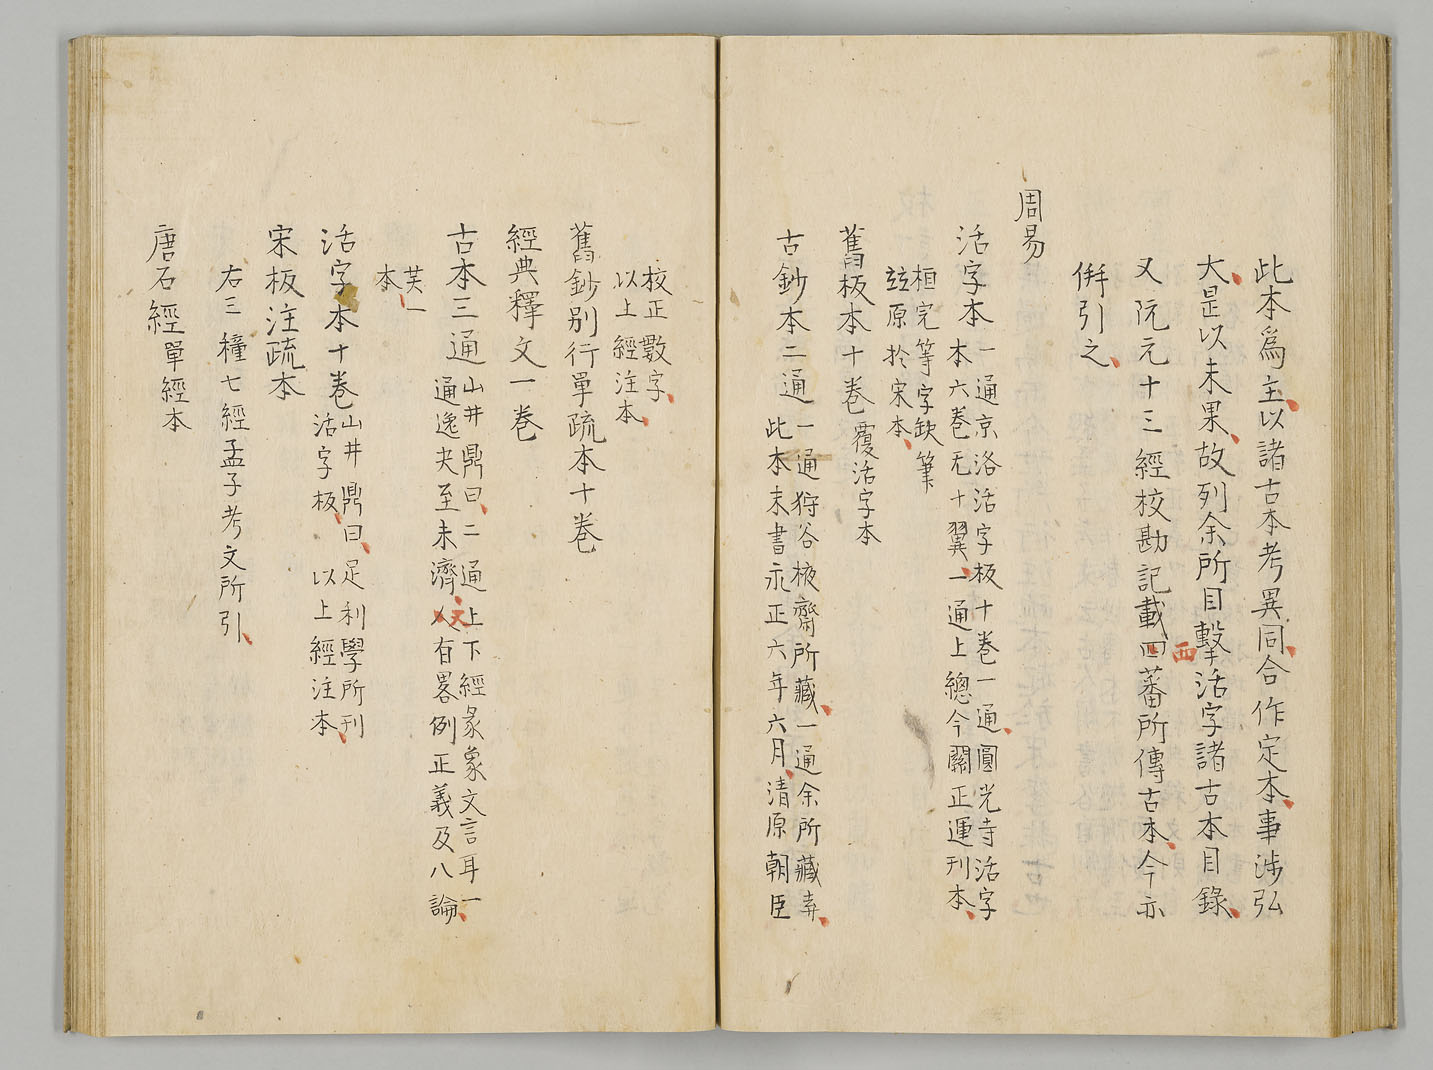 此本爲主以諸古本考異同合作定本事涉弘
大是以未果故列余所目擊活字諸古本目錄
又阮元十三經校勘記載四西蕃所傳古本今亦
併引之
周易
活字本一通京洛活字板十卷一通圓光寺活字
本六卷无十翼一通上總今關正運刊本
桓完等字欽筆
竝原於宋本
舊板本十卷覆活字本
古鈔本二通一通狩谷棭齋所藏一通余所藏弆
此本末書永正六年六月清原朝臣
校正數字
以上經注本
舊鈔別行單疏本十卷
經典釋文一卷
古本三通山井鼎曰二通上下經彖象文言耳一
通逸夬至未濟人又有畧例正義及八論
共一
本
活字本十卷山井鼎曰足利學所刊
活字板 以上經注本
宋板注疏本
右三種七經孟子考文所引
唐石經單經本